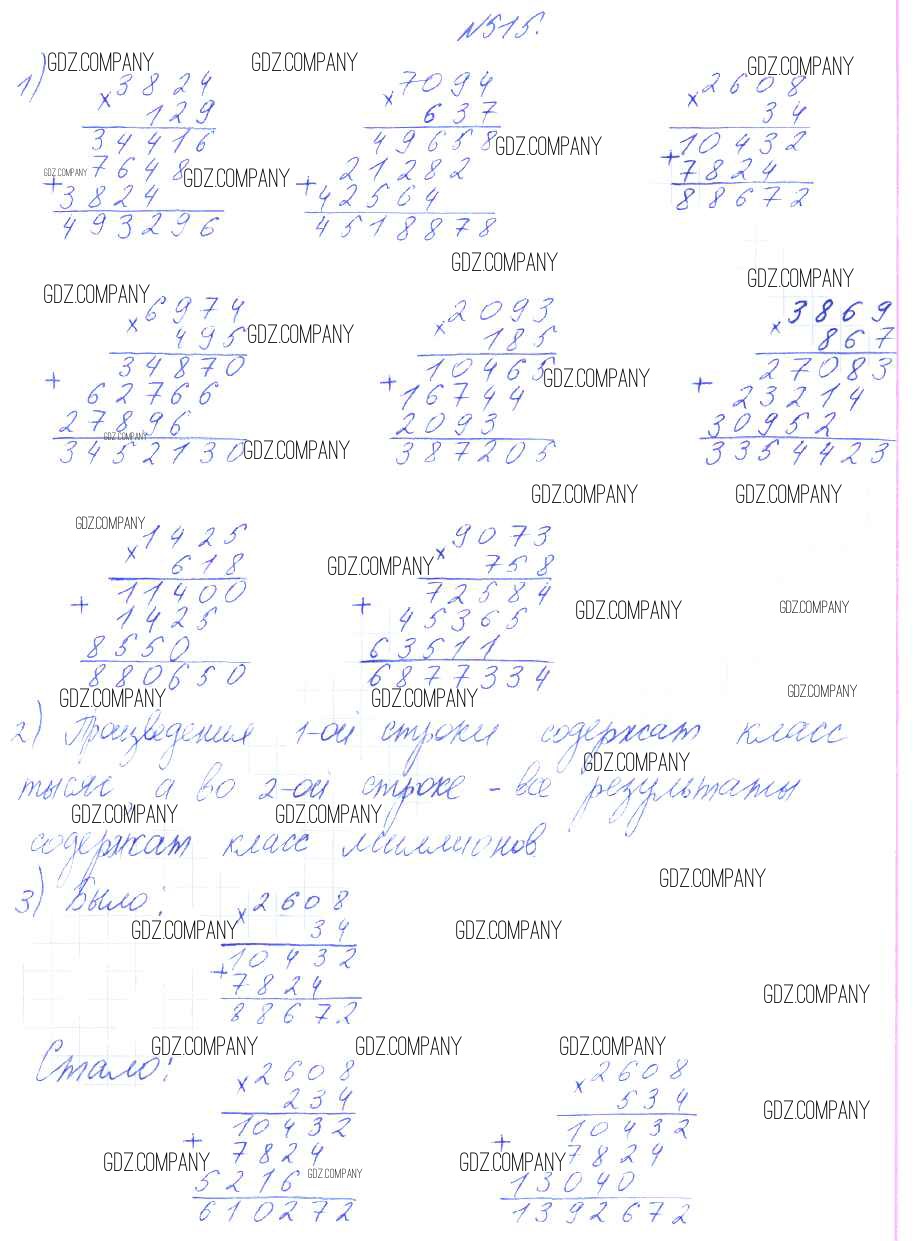 №515.
GDZ.COMPANY GDZ.COMPANY GDZ.COMPANY
1) ×3824 ×7094 ×2608
129 637 34
34416 49658 10432
GDZ.COMPANY
7648 21282 +7824
GDZ.COMPANY GDZ.COMPANY
+3824 +42564 88672
493296 4518878
GDZ.COMPANY GDZ.COMPANY
GDZ.COMPANY
×6974 ×2093 ×3869
495 185 867
GDZ.COMPANY
34870 10465 27083
GDZ.COMPANY
+62766 +16744 +23214
27896 2093 30952
GDZ.COMPANY
3452130 387205 3354423
GDZ.COMPANY
GDZ.COMPANY GDZ.COMPANY
GDZ.COMPANY
×1425 ×9073
618 758
GDZ.COMPANY
11400 72584
+1425 +45365
GDZ.COMPANY GDZ.COMPANY
8550 63511
880650 6877334
GDZ.COMPANY GDZ.COMPANY GDZ.COMPANY
2) Произведения 1-ой строки содержат класс
GDZ.COMPANY
тысяч, а во 2-ой строке - все результаты
GDZ.COMPANY GDZ.COMPANY
содержат класс миллионов.
GDZ.COMPANY
3) Было: ×2608
34
GDZ.COMPANY GDZ.COMPANY
10432
+7824
GDZ.COMPANY
88672
GDZ.COMPANY GDZ.COMPANY GDZ.COMPANY
Стало: ×2608 ×2608
234 534
GDZ.COMPANY
10432 10432
+7824 +7824
GDZ.COMPANY GDZ.COMPANY
GDZ.COMPANY
5216 13040
610272 1392672